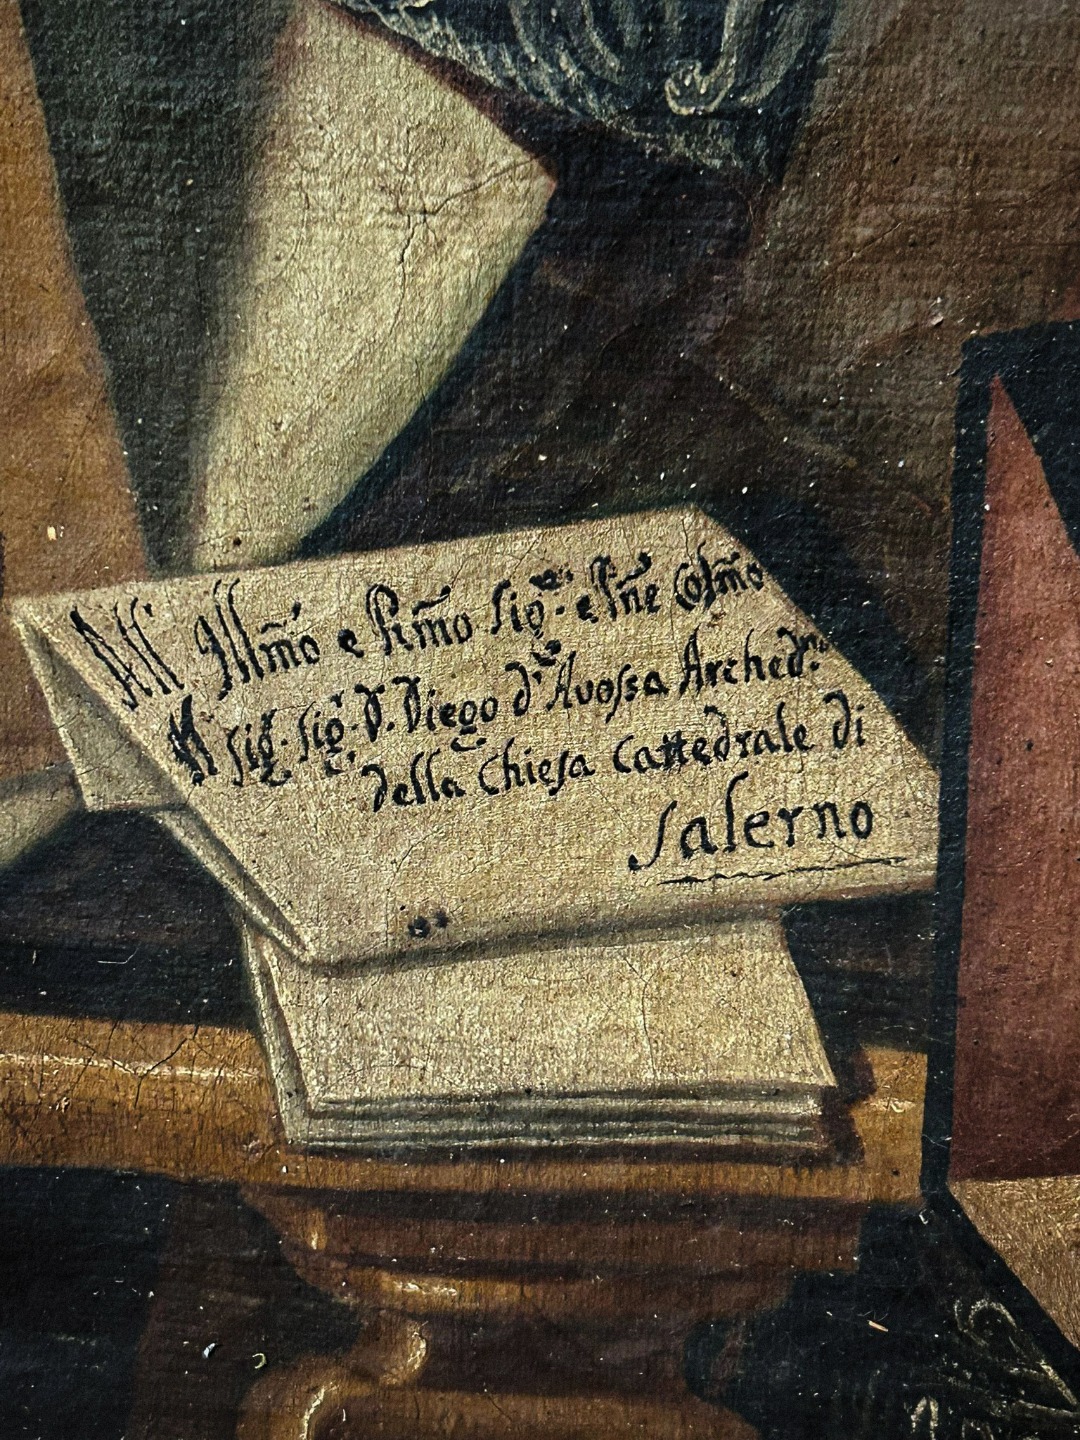 All' Illm̃o e Rm̃o Sig.r e Pñe Colm̃o
Il Sig.r Sig.r D. Diego d'Avossa Arched.no
della Chiesa Cattedrale di
Salerno